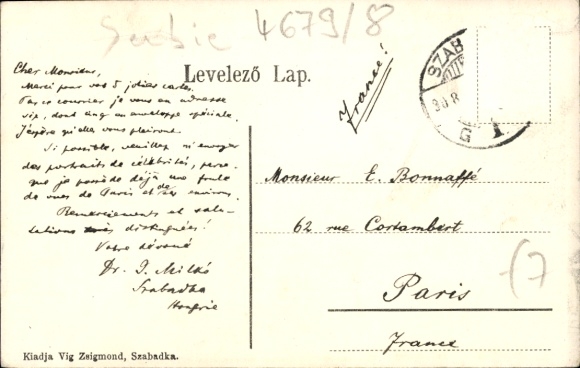 Serbie 4679/8
Levelező Lap.
France!
SZAB
G 1
Cher Monsieur,
Merci pour vos 5 jolies cartes.
Par ce courrier je vous en adresse
six, dont cinq en enveloppe spéciale.
J'espère qu'elles vous plairont.
Si possible, veuillez m'envoyer
des portraits de célébrités, parce
que je possède déjà une foule
de vues de Paris et de ses environs.
Remerciements et salu-
tations très distinguées!
Votre dévoué
Dr. J. Milkó
Szabadka
Hongrie
Monsieur E. Bonnaffé
62 rue Cortambert
Paris
France
Kiadja Vig Zsigmond, Szabadka.